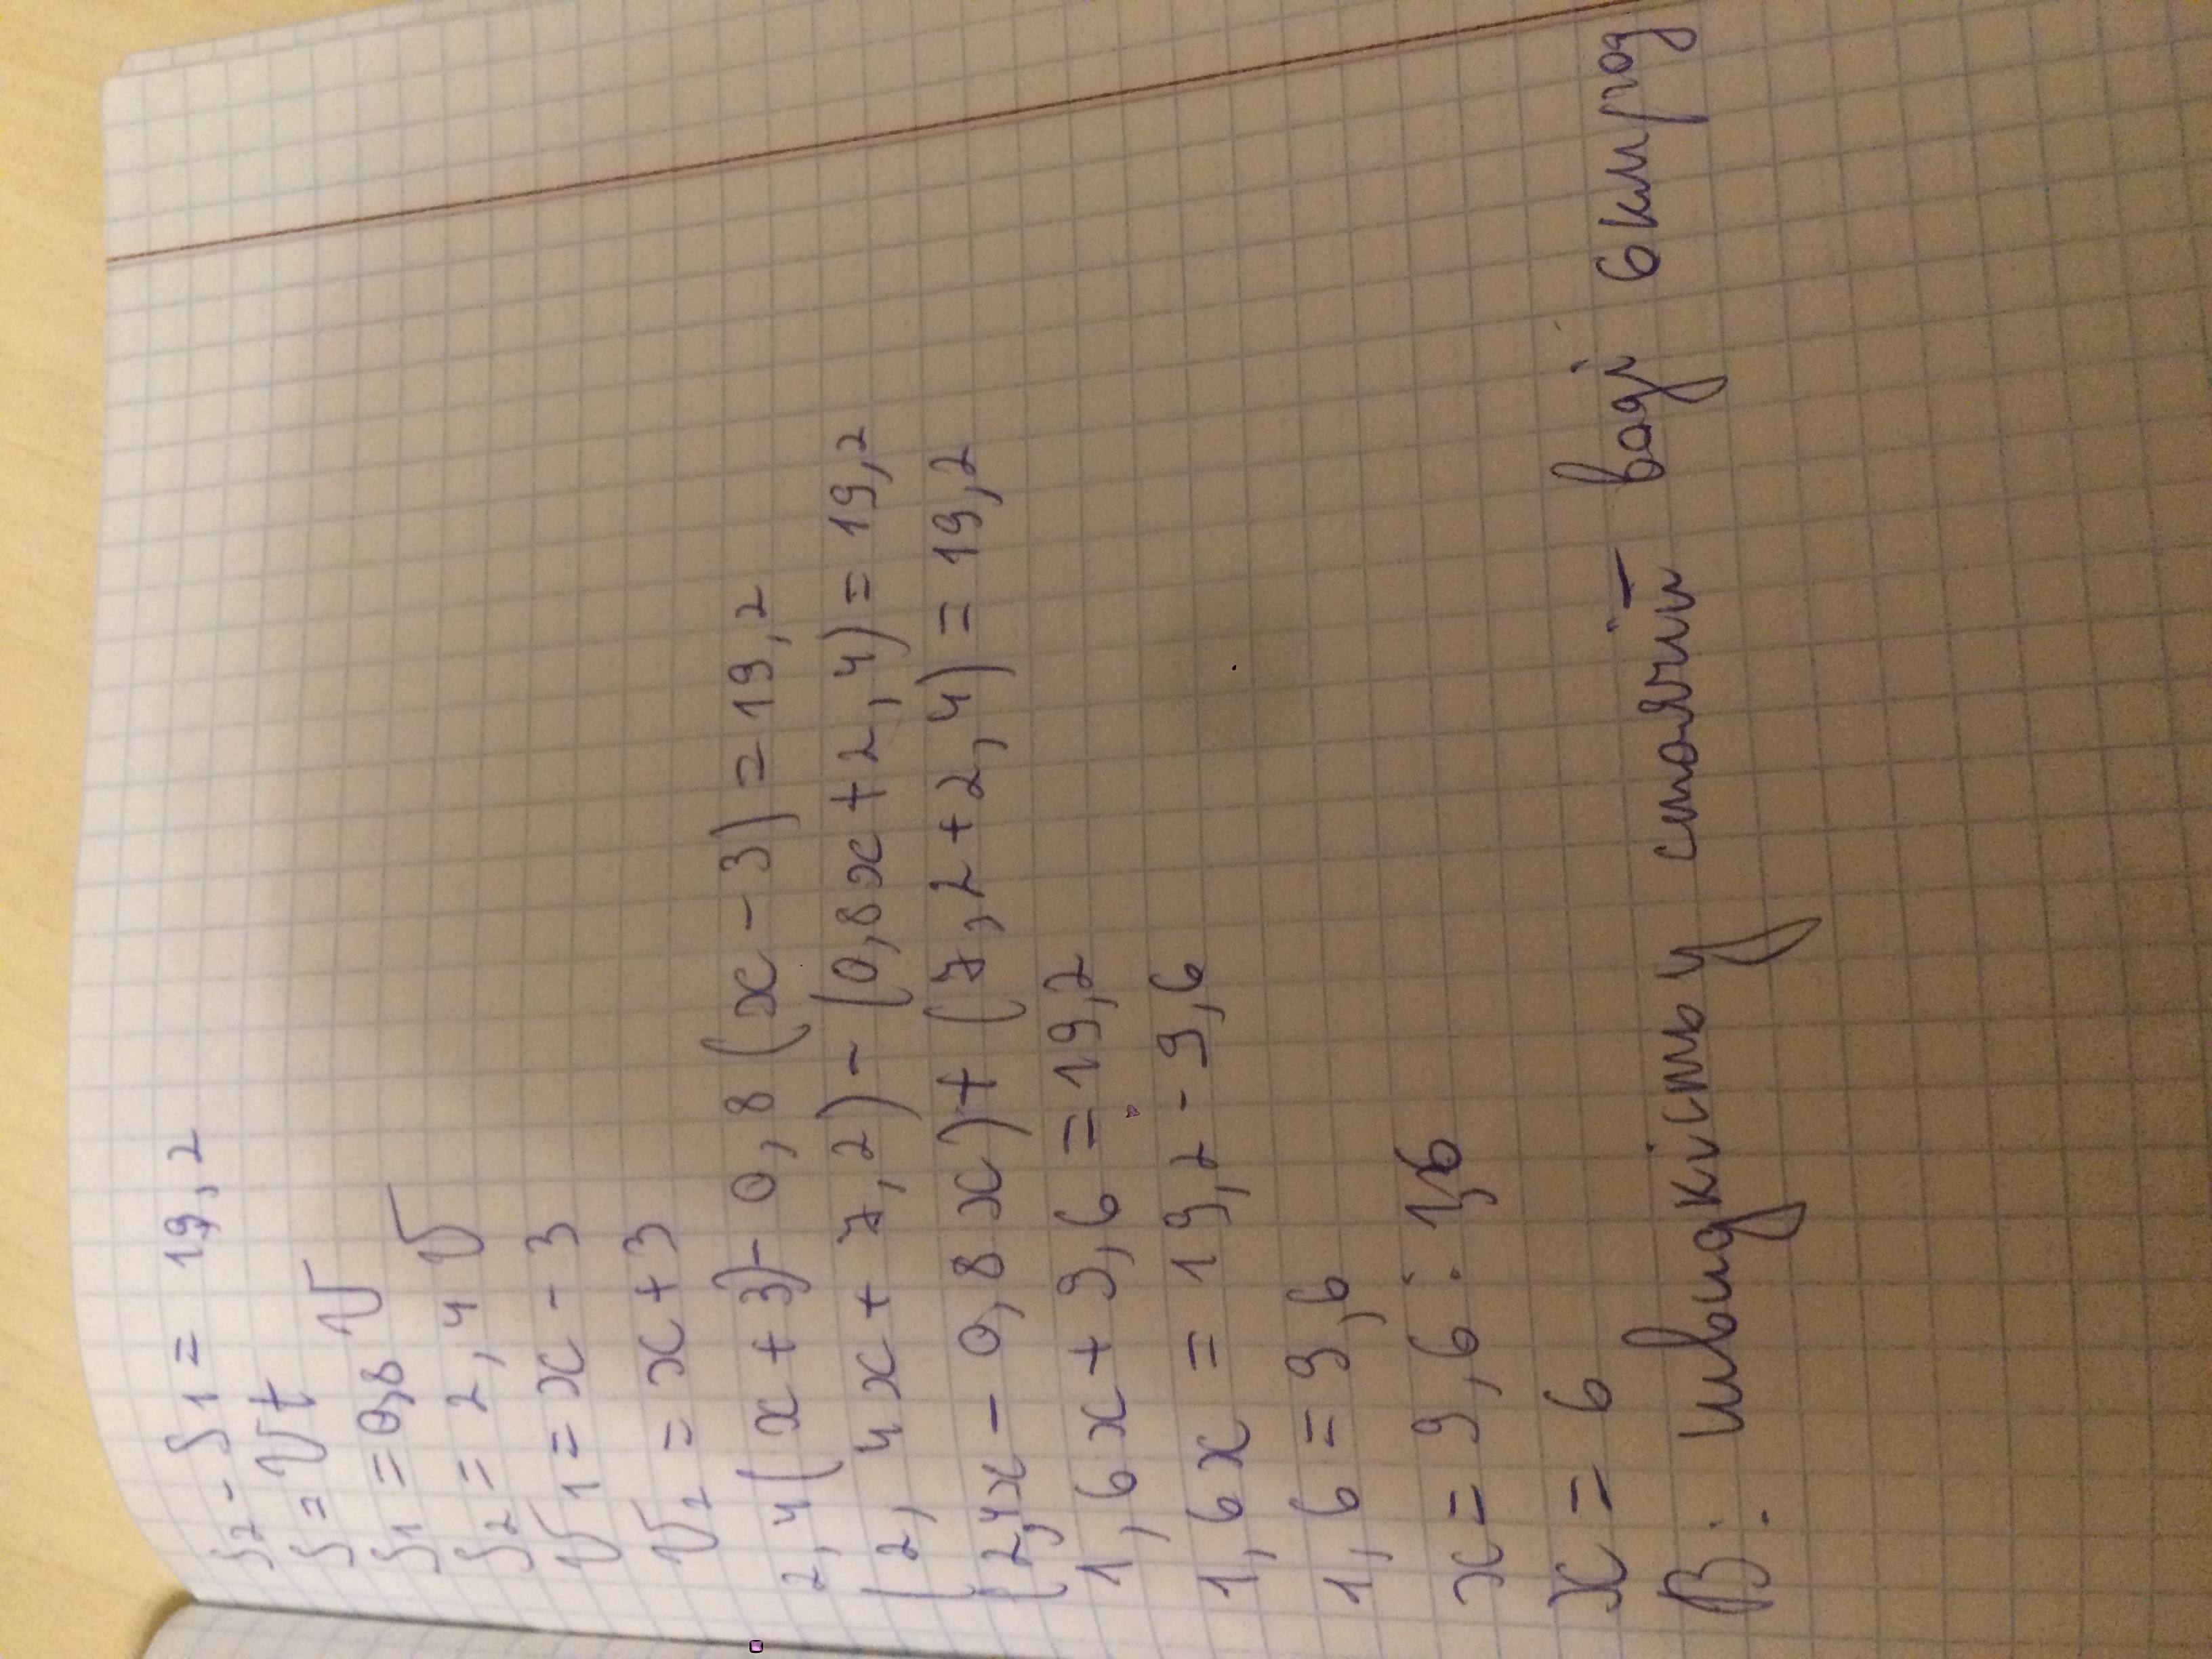 S2 - S1 = 19,2
S = Vt V
S1 = 0,8
S2 = 2,4 V
V1 = x - 3
V2 = x + 3
2,4(x+3) - 0,8(x-3) = 19,2
(2,4x + 7,2) - (0,8x + 2,4) = 19,2
(2,4x - 0,8x) + (7,2 + 2,4) = 19,2
1,6x + 9,6 = 19,2
1,6x = 19,2 - 9,6
1,6 = 9,6
x = 9,6 : 1,6
x = 6
В: швидкість у стоячій воді 6 км/год